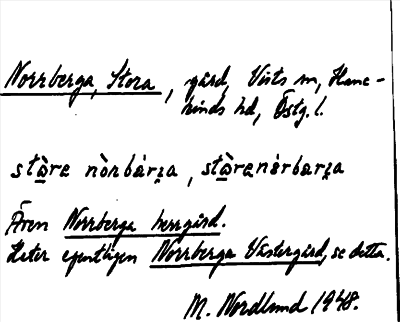 Norrberga, Stora, gård, Vists sn, Hane-
kinds hd, Östg. l.
stòre nòrbárɪa, stòrenårbarɪa
Även Norrberga herrgård.
Heter egentligen Norrberga Västergård, se detta.
M. Nordlund 1948.